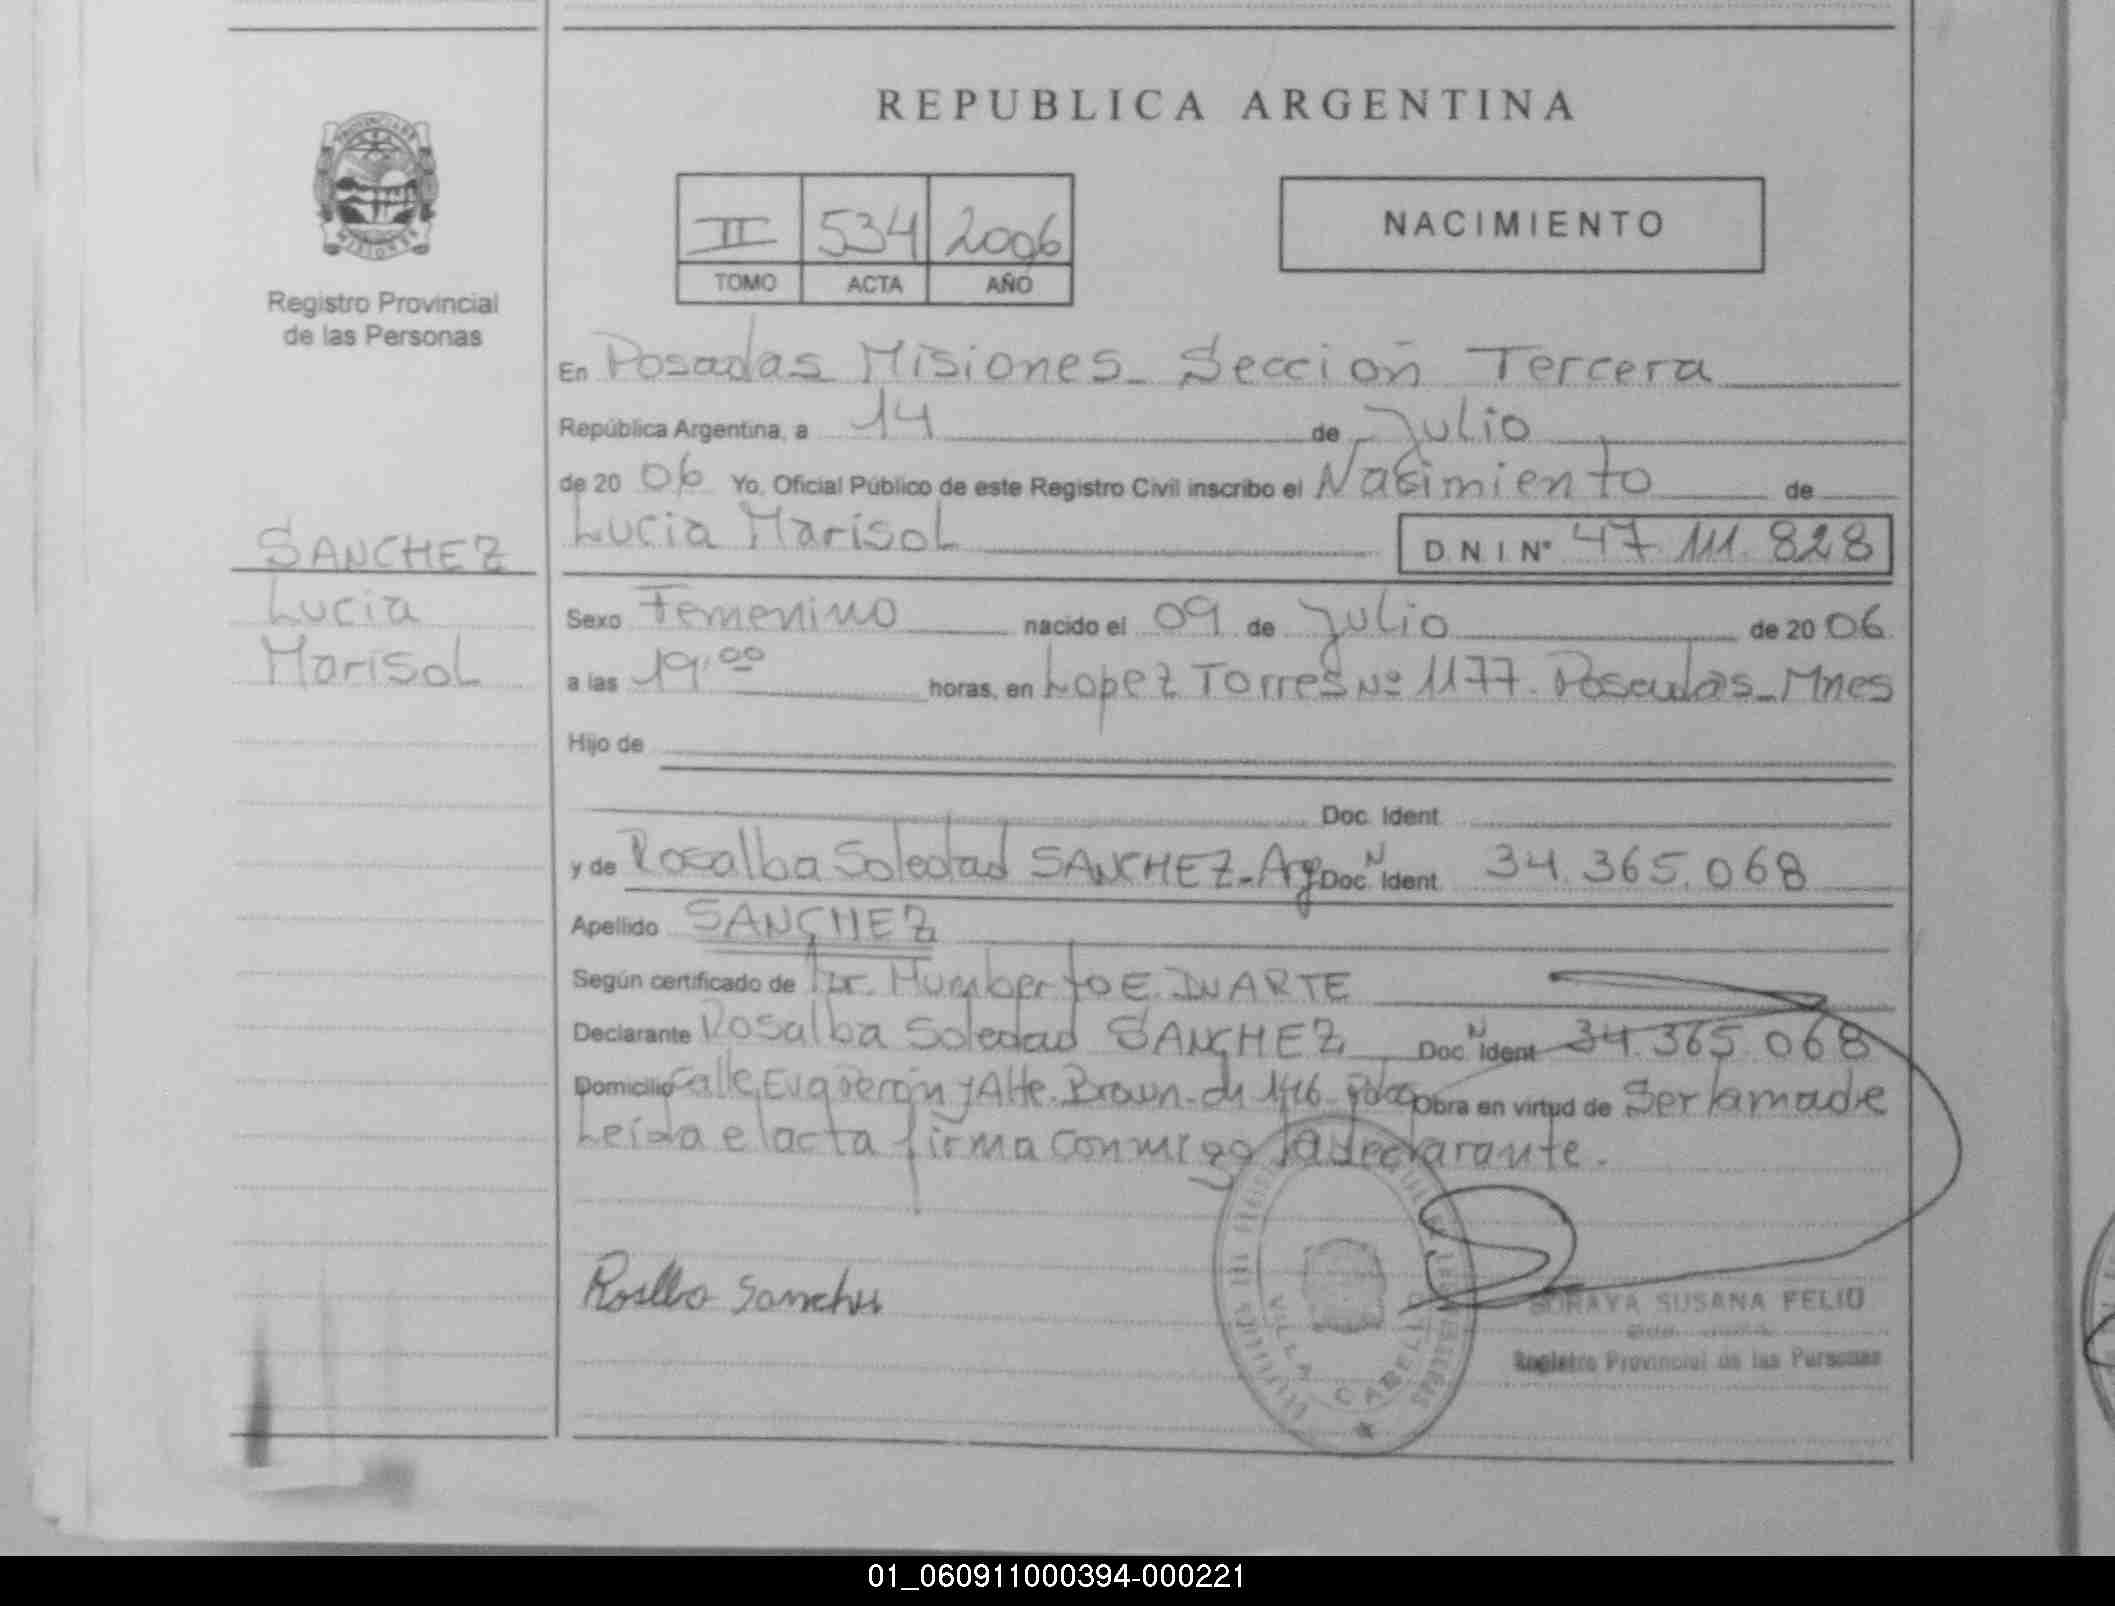 REPUBLICA ARGENTINA
PROVINCIA DE
MISIONES
Registro Provincial
de las Personas
II 534 2006
TOMO ACTA AÑO
NACIMIENTO
En Posadas Misiones - Sección Tercera
República Argentina, a 14 de Julio
de 20 06 Yo, Oficial Público de este Registro Civil inscribo el Nacimiento de
Lucia Marisol D N I Nº 47.111.828
SANCHEZ
Lucia
Marisol
Sexo Femenino nacido el 09 de Julio de 20 06
a las 19:00 horas, en Lopez Torres Nº 1177. Posadas - Mnes
Hijo de
Doc. Ident.
y de Rosalba Soledad SANCHEZ - Arg Doc. N Ident. 34.365.068
Apellido SANCHEZ
Según certificado de Dr. Humberto E. DUARTE
Declarante Rosalba Soledad SANCHEZ Doc. N Ident 34.365.068
Domicilio Calle Eva Perón y Alte. Brown - Obra en virtud de Ser la madre
Leída el acta firma conmigo la declarante.
Rosalba Sanchez
VILLA CABELLO
SORAYA SUSANA FELIU
Registro Provincial de las Personas
01_060911000394-000221